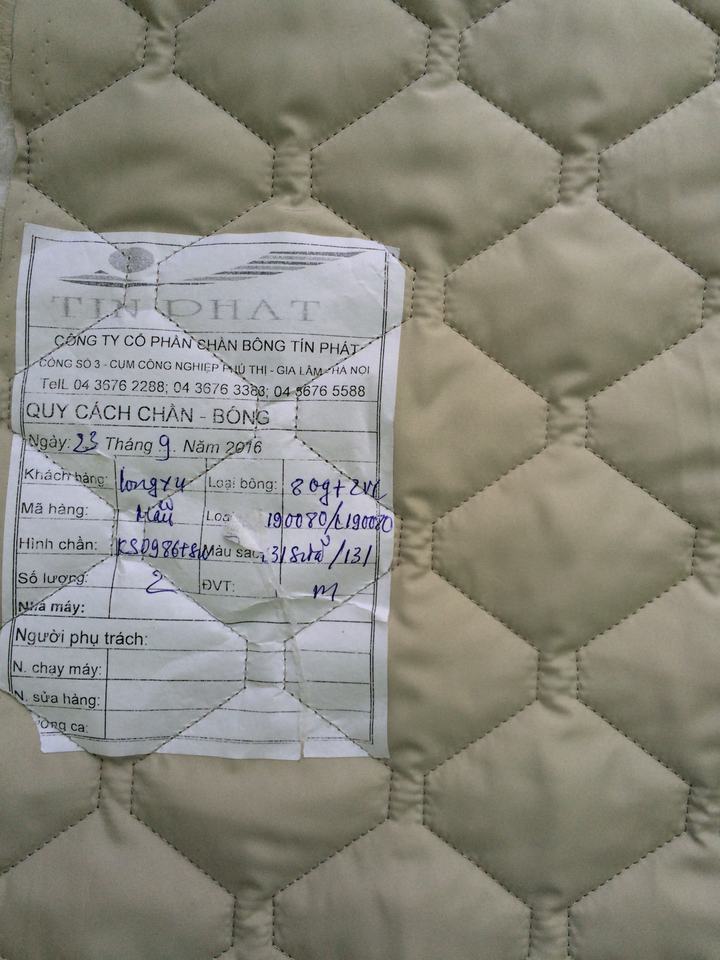 TIN PHAT
CÔNG TY CỔ PHẦN CHẦN BÔNG TÍN PHÁT
CÔNG SỐ 3 - CỤM CÔNG NGHIỆP PHÚ THỊ - GIA LÂM - HÀ NỘI
TelL 04 3676 2288; 04 3676 3383; 04 3676 5588
QUY CÁCH CHẦN - BÔNG
Ngày: 23 Tháng 9. Năm 2016
Khách hàng: Loại bông: 80g+
Mã hàng: Mẫu 190080/L190080
Hình chần: Màu sắc: /131
Số lượng: 2 ĐVT: m
Nhà máy:
Người phụ trách:
N. chạy máy:
N. sửa hàng:
ca: